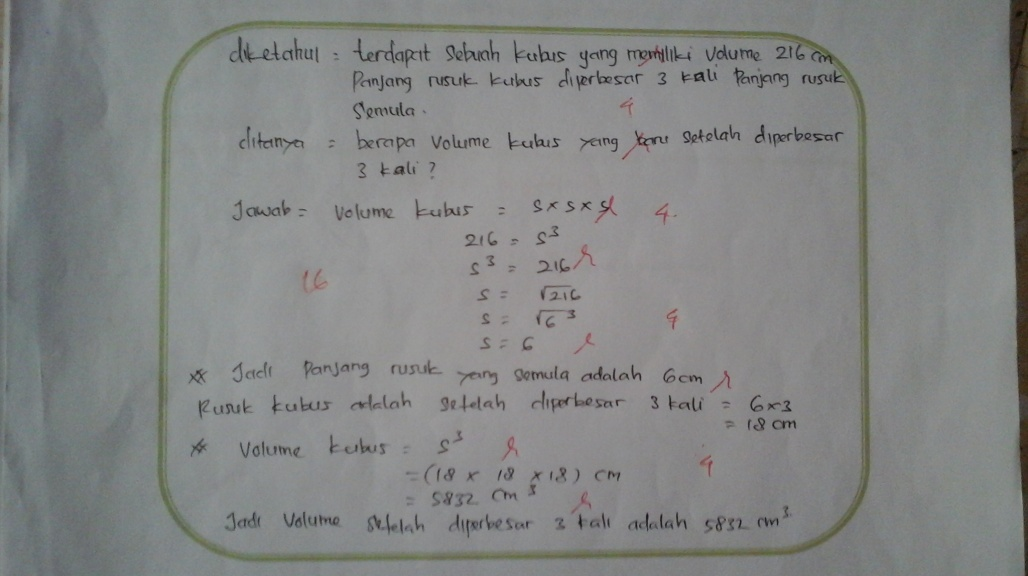 diketahui = terdapat sebuah kubus yang memiliki volume 216 cm
Panjang rusuk kubus diperbesar 3 kali Panjang rusuk
Semula.
4
ditanya = berapa volume kubus yang baru setelah diperbesar
3 kali?
Jawab = Volume kubus = s x s x s 4.
216 = s³
s³ = 216
16
s = √216
s = √6³ 4
s = 6
** Jadi Panjang rusuk yang semula adalah 6 cm
Rusuk kubus adalah setelah diperbesar 3 kali = 6x3
= 18 cm
** Volume kubus = s³
4
= (18 x 18 x 18) cm
= 5832 cm³
Jadi Volume setelah diperbesar 3 kali adalah 5832 cm³.